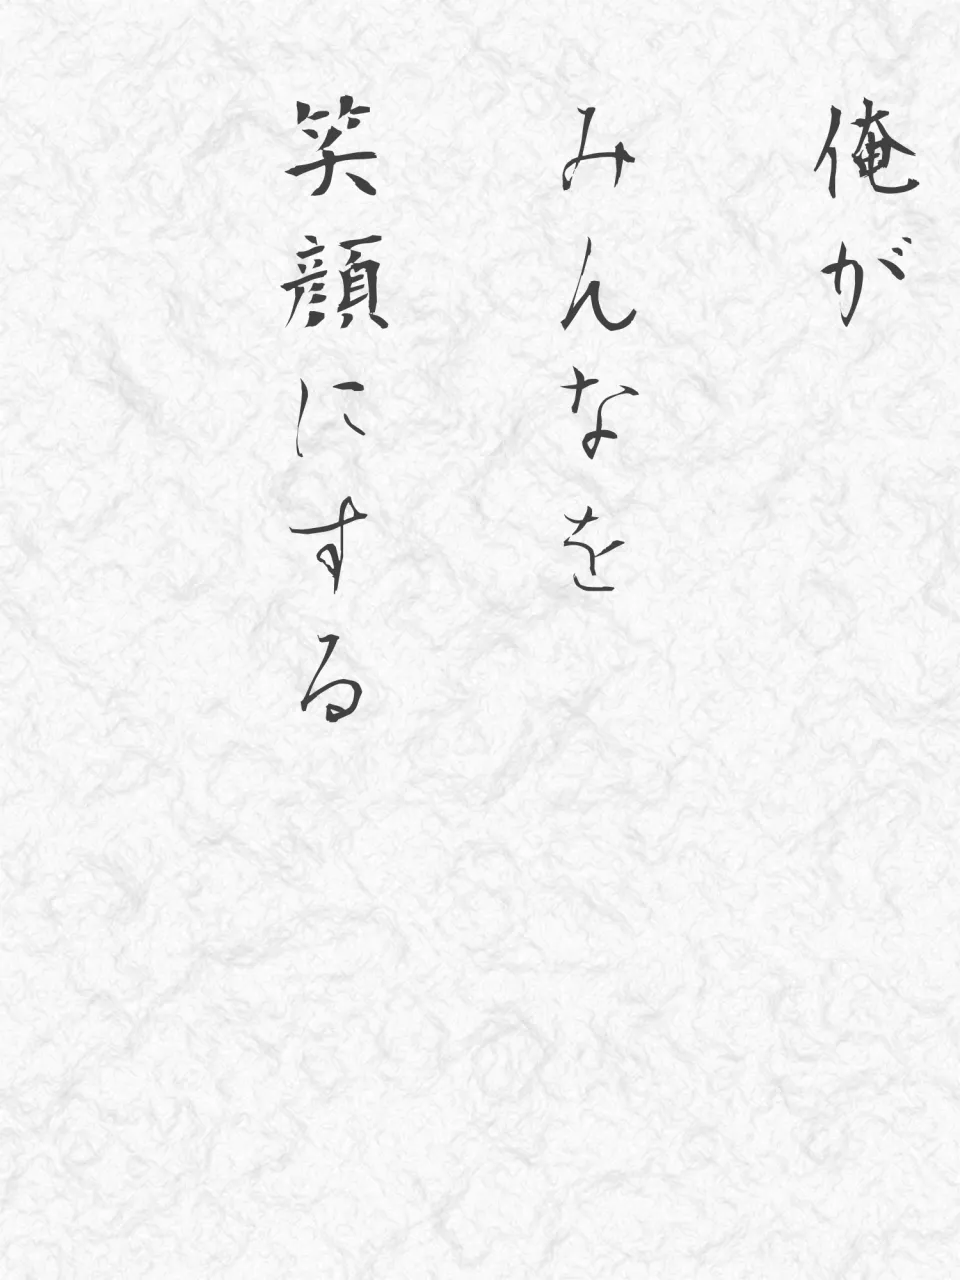 俺が
みんなを
笑顔にする